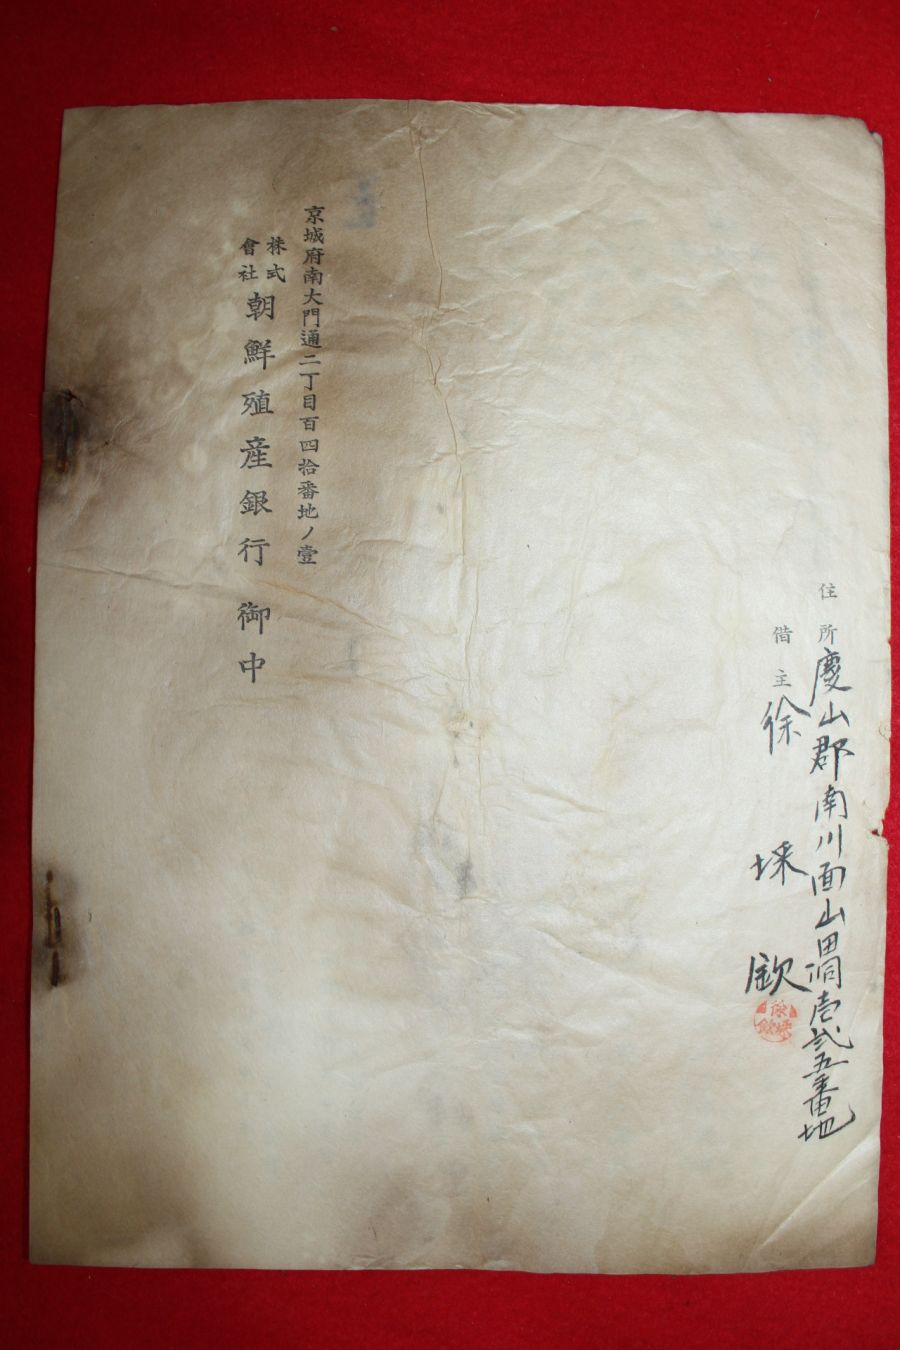 住所 慶山郡南川面山田洞壱弐五番地
借主 徐埰欽
京城府南大門通二丁目百四拾番地ノ壹
株式會社 朝鮮殖産銀行 御中